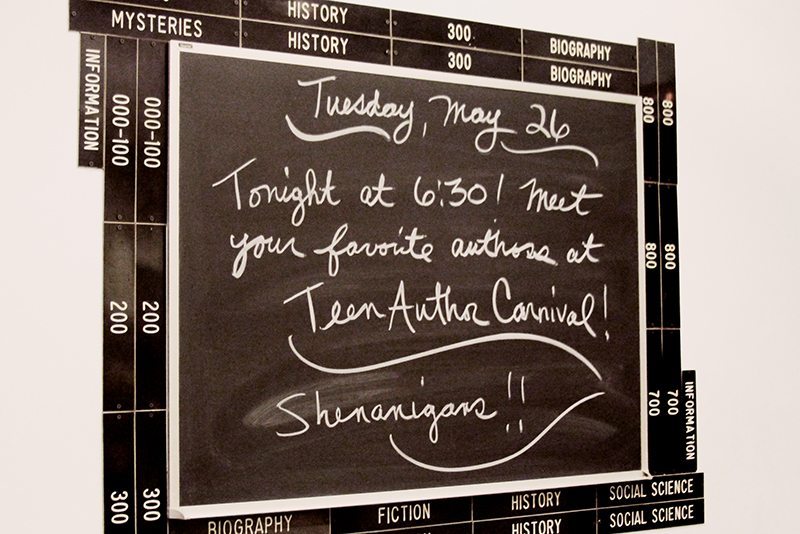 HISTORY
300
MYSTERIES
HISTORY
300
BIOGRAPHY
BIOGRAPHY
INFORMATION
000-100
000-100
200
200
300
300
Tuesday, May 26
Tonight at 6:30! Meet
your favorite authors at
Teen Author Carnival!
Shenanigans!!
800
800
800
800
700
700
INFORMATION
BIOGRAPHY
FICTION
HISTORY
SOCIAL SCIENCE
HISTORY
SOCIAL SCIENCE